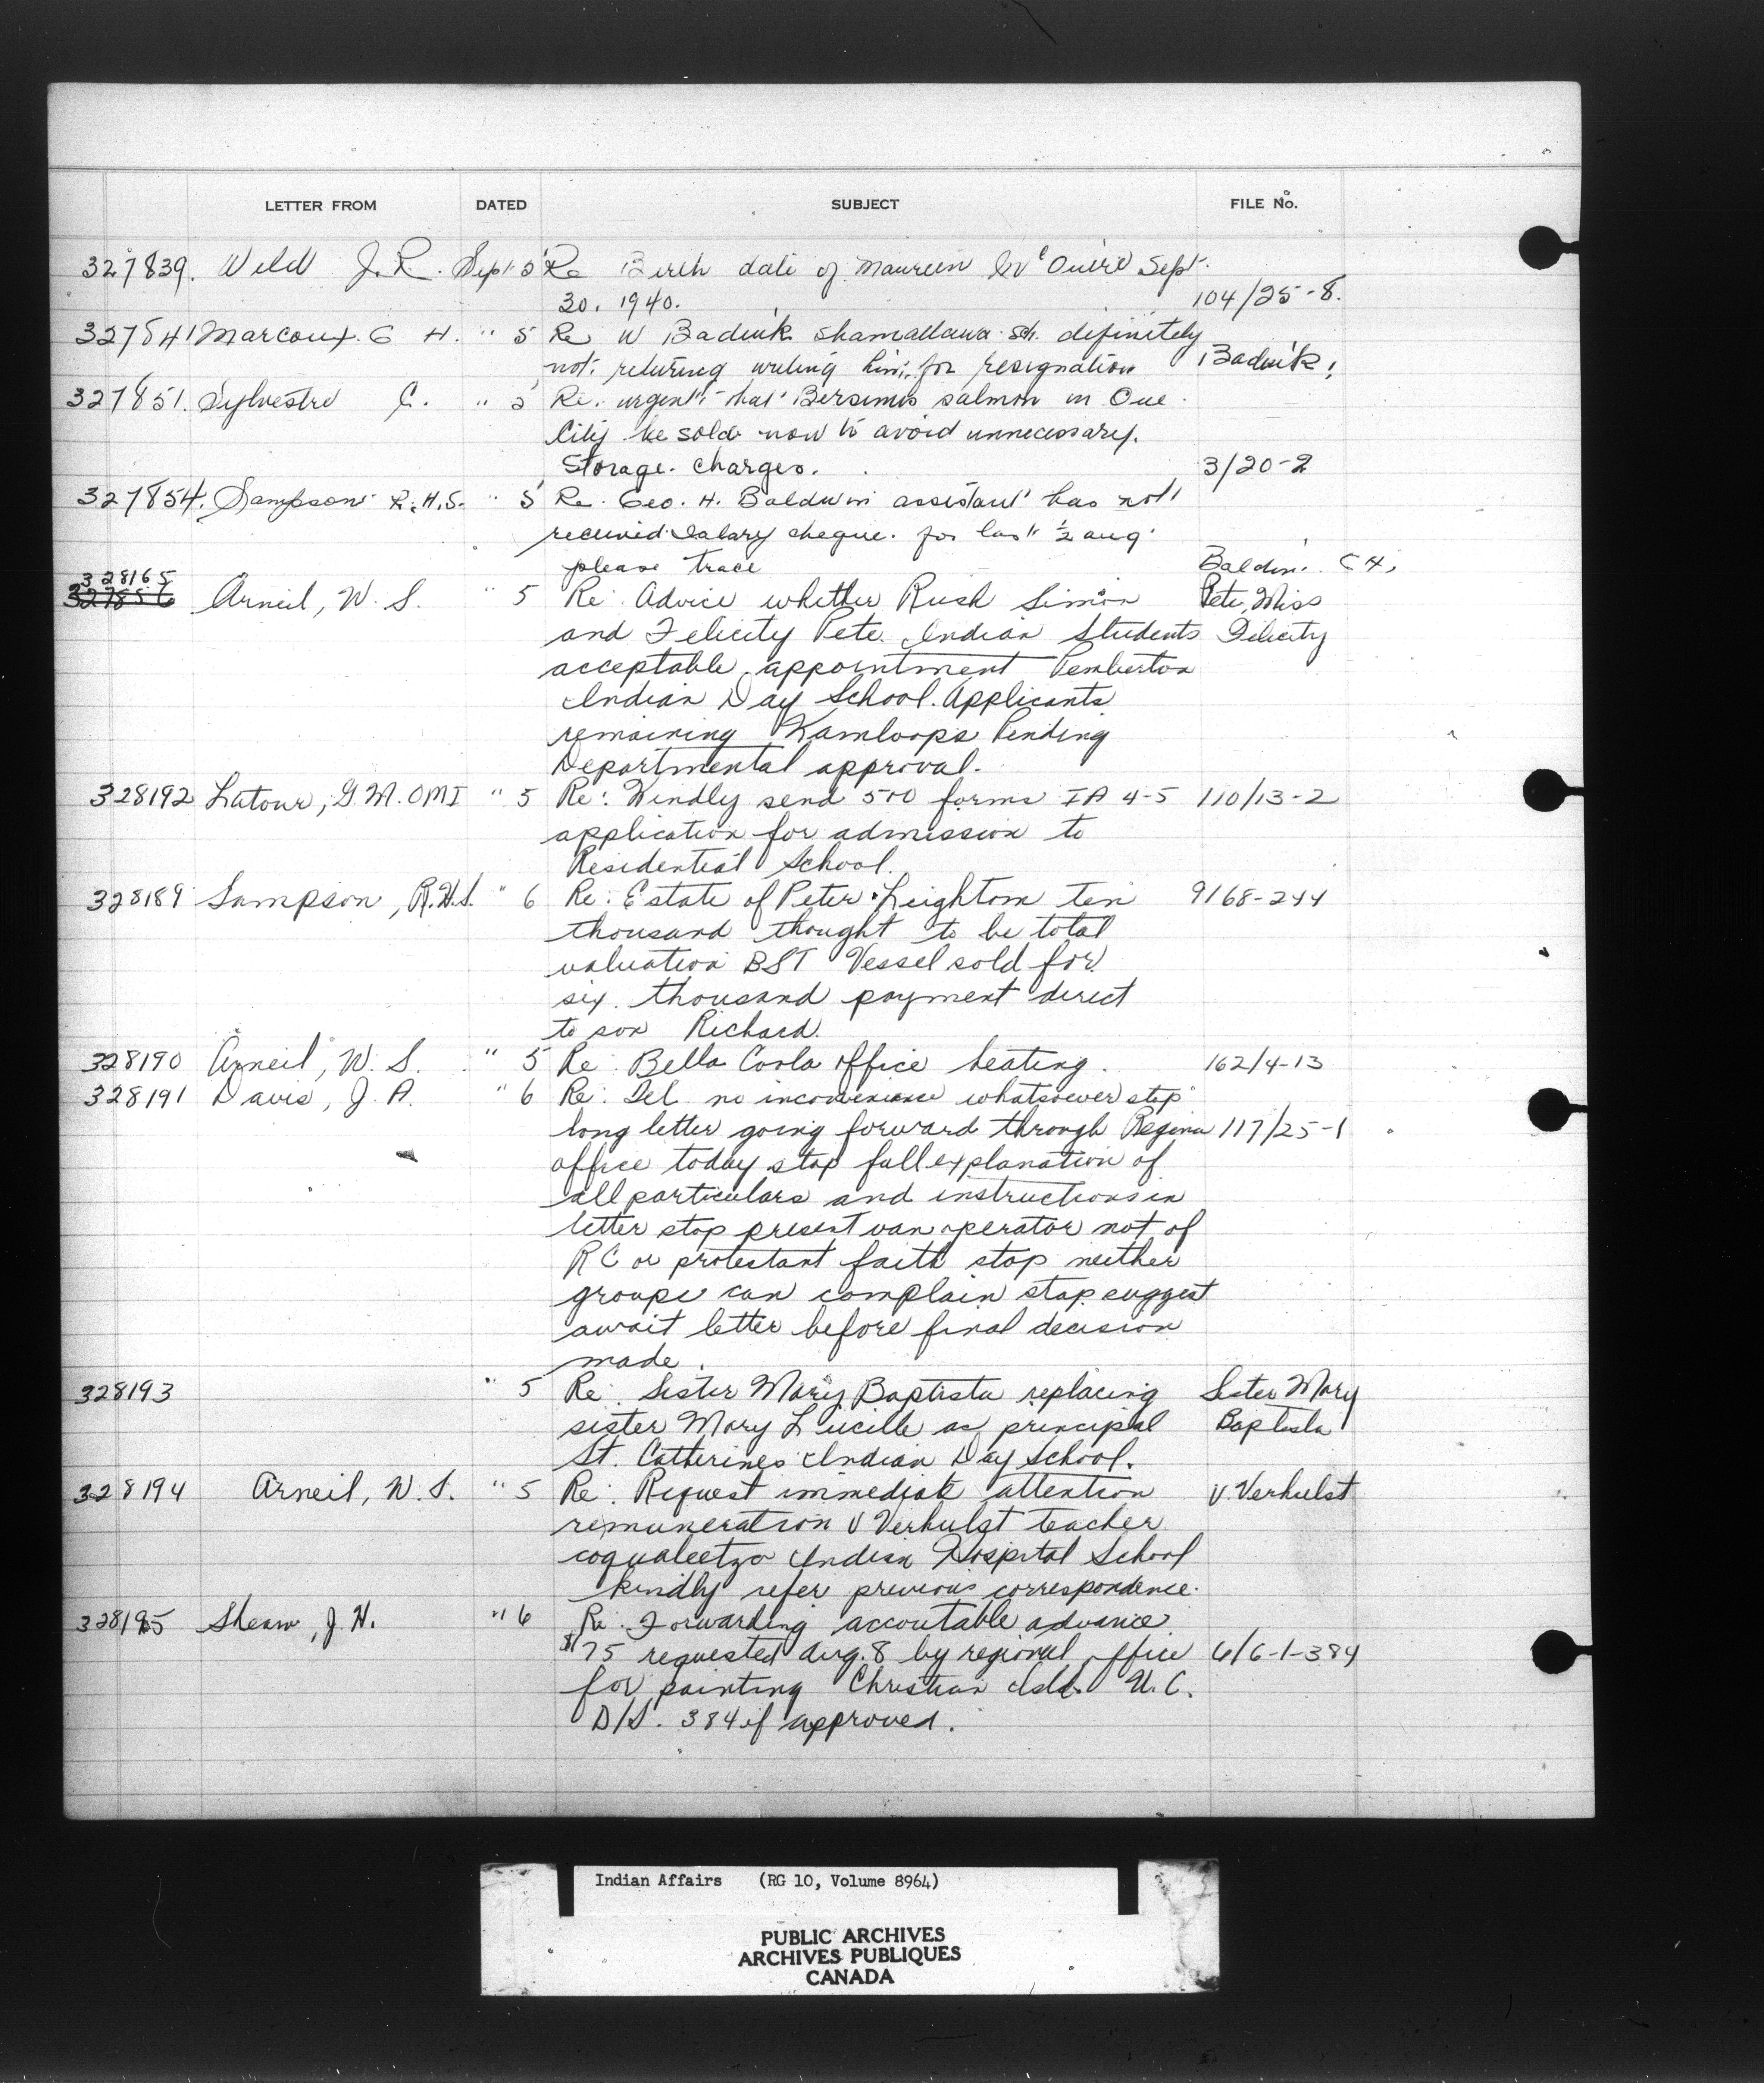 LETTER FROM DATED SUBJECT FILE No.
327839. Weld J. R. Sept 5 Re Birth date of Maureen Sept.
30. 1940. 104/25-8.
327841 Marcoux. G H. " 5 Re W Badiuk Shamattawa sch. definitely
not. returing writing him. for resignation Badiuk.
327851. Sylvestre C. " 5 Re. urgent that Bersimis salmon in Que
City be sold now to avoid unnecessary.
Storage. charges. 3/20-2
327854. Sampson R. H. S. " 5 Re. Geo. H. Baldwin assistant has not
received salary cheque. for last 1/2 aug
please trace Baldwin. G H,
328165
327856 Arneil, W. S. " 5 Re: Advice whether Rush Simon Pete, Miss
and Felicity Pete Indian Students Felicity
acceptable appointment Pemberton
Indian Day School. Applicants
remaining Kamloops Pending
Departmental approval.
328192 Latour, G. M. OMI " 5 Re: Kindly send 500 forms IA 4-5 110/13-2
application for admission to
Residential School.
328189 Sampson, R. H. S. " 6 Re: Estate of Peter Leighton ten 9168-244
thousand thought to be total
valuation BST Vessel sold for
six. thousand payment direct
to son Richard.
328190 Arneil, W. S. " 5 Re: Bella Coola office heating. 162/4-13
328191 Davis, J. A. " 6 Re: Tel no inconvenience whatsoever stop
long letter going forward through Regina 117/25-1
office today stop full explanation of
all particulars and instructions in
letter stop present van operator not of
RC or protestant faith stop neither
groups can complain stop suggest
await letter before final decision
made.
328193 " 5 Re: Sister Mary Baptista replacing Sister Mary
sister Mary Lucille as principal Baptista
St. Catherines Indian Day School.
328194 Arneil, W. S. " 5 Re: Request immediate attention V. Verhulst
remuneration V Verhulst teacher
coqualeetza Indian Hospital School
kindly refer previous correspondence.
328195 J. H. " 6 Re: Forwarding accoutable advance
$75 requested Aug. 8 by regional office 6/6-1-384
for painting Christian Isld. U. C.
D/S. 384 if approved.
Indian Affairs (RG 10, Volume 8964)
PUBLIC ARCHIVES
ARCHIVES PUBLIQUES
CANADA